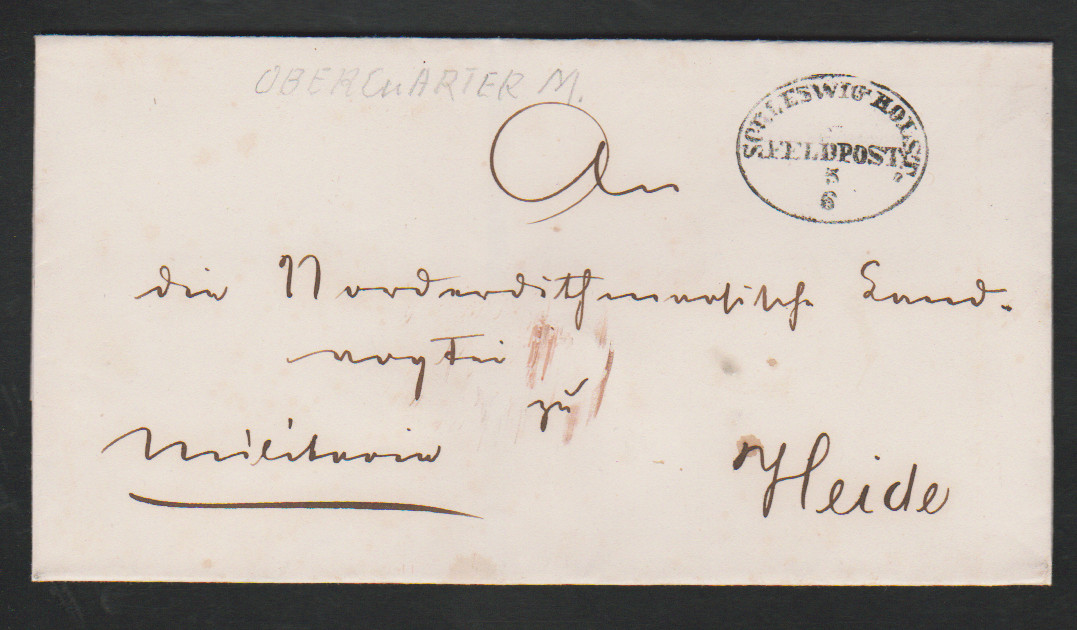 OBERQUARTER M.
SCHLESWIG HOLST.
FELDPOST.
5
6
An
die Norderdithmarsische Land-
vogtei
zu
Militaria
Heide